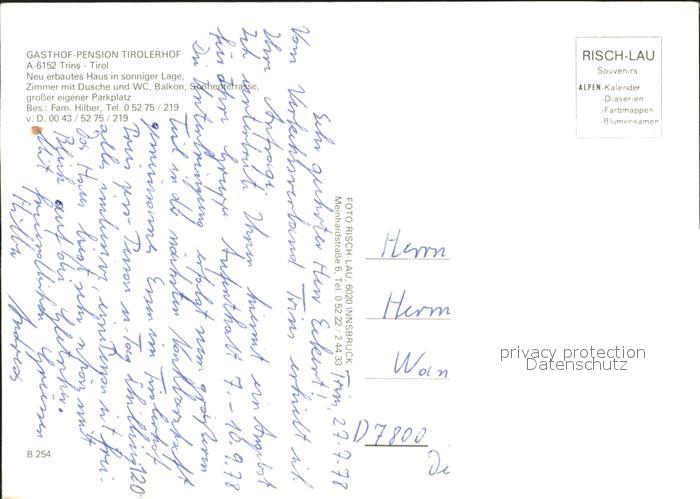 GASTHOF-PENSION TIROLERHOF
A-6152 Trins - Tirol
Neu erbautes Haus in sonniger Lage,
Zimmer mit Dusche und WC, Balkon, Sonnenterrasse,
großer eigener Parkplatz
Bes.: Fam. Hilber, Tel. 0 52 75 / 219
v. D. 00 43 / 52 75 / 219
RISCH-LAU
Souvenirs:
ALPEN-Kalender
-Diaserien
-Farbmappen
-Blumensamen
Trins, 27.7.78
Sehr geehrter Herr Eckert!
Vom Verkehrsverband Trins erhielt ich
Ihre Anfrage.
Ich unterbreite Ihnen hiermit ein Angebot
für Ihre Gruppe Aufenthalt 7. - 10.9.78
Die Unterbringung erfolgt zum größeren
Teil in der nächsten Nachbarschaft
gemeinsames Essen im Tirolerhof
Preis pro Person u. Tag Schilling 120
alles inklusive,
das Haus liegt sehr schön mit
Blick auf die Gletscher.
Mit freundlichen Grüssen
Hilber Andreas
FOTO RISCH-LAU, 6020 INNSBRUCK
Meinhardstraße 6, Tel. 0 52 22 / 2 44 33
Herrn
Herm
Wan
D 7800
Di
privacy protection
Datenschutz
B 254